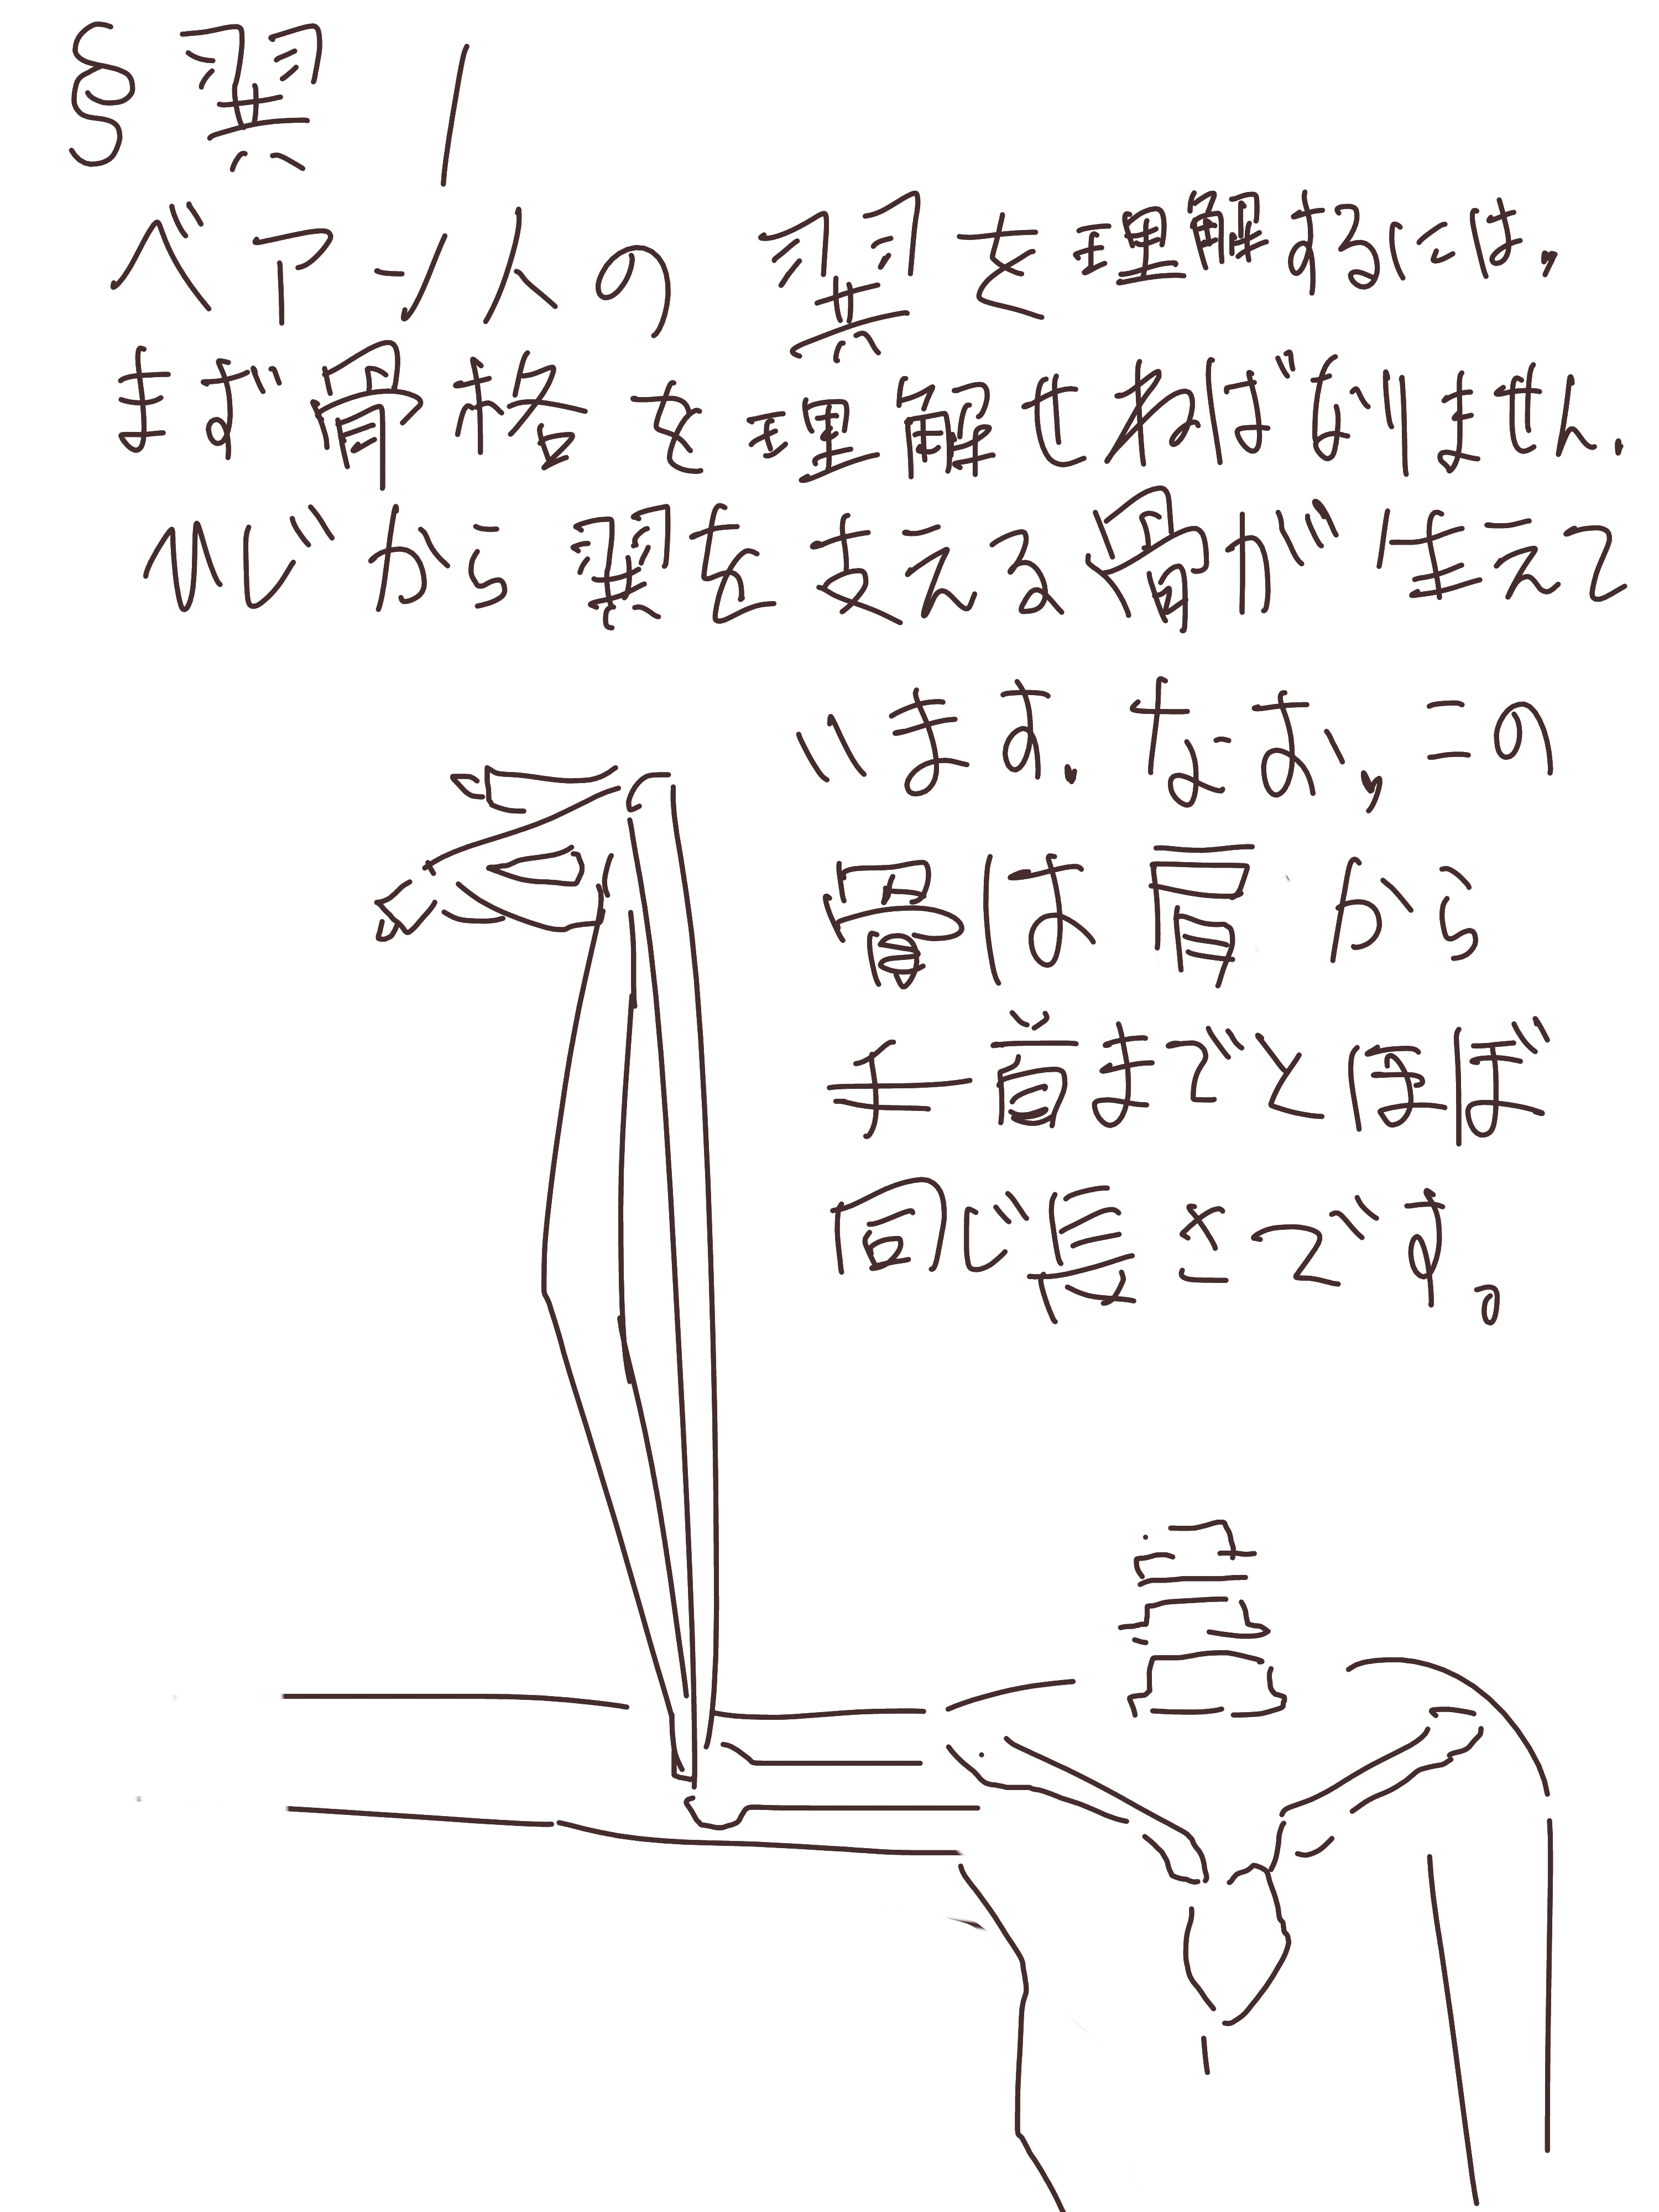 §翼 1
ベアン人の翼を理解するには,
まず骨格を理解せねばなりません.
ひじから翼を支える骨が生えて
います. なお, この
骨は肩から
手首までとほぼ
同じ長さです。